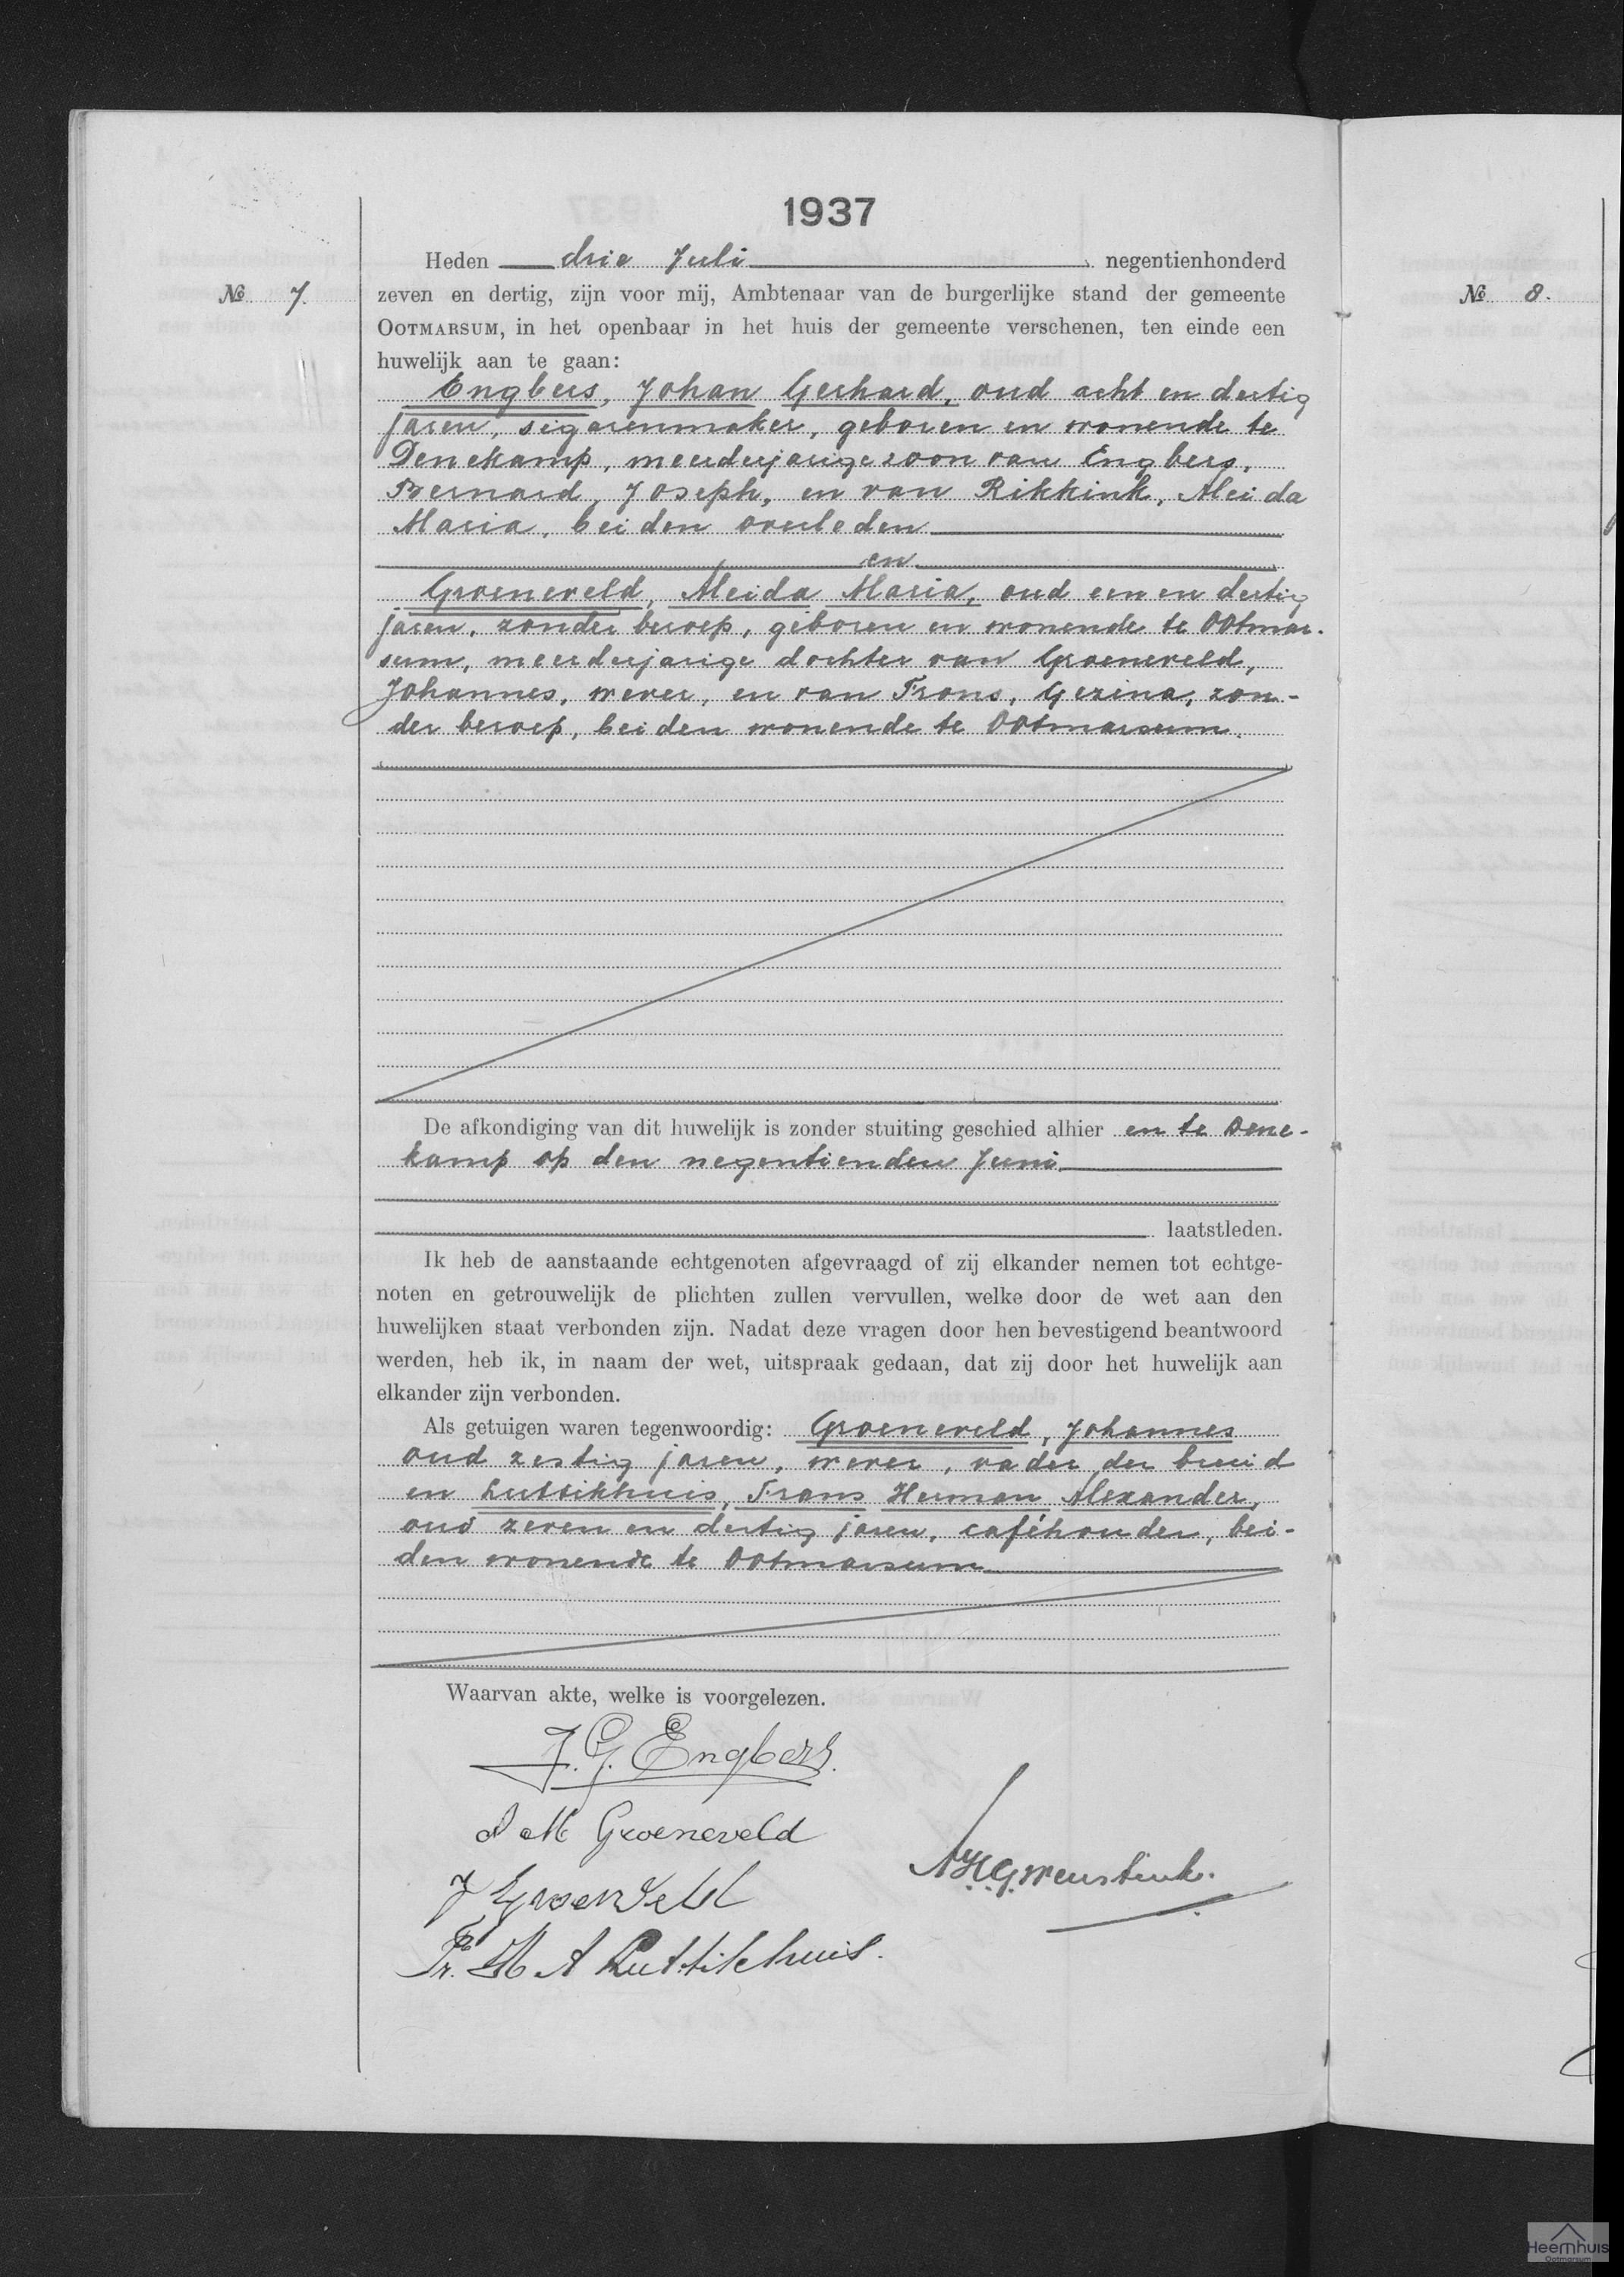 1937
Heden drie Juli negentienhonderd
№ 7.
zeven en dertig, zijn voor mij, Ambtenaar van de burgerlijke stand der gemeente
OOTMARSUM, in het openbaar in het huis der gemeente verschenen, ten einde een
huwelijk aan te gaan:
Engbers, Johan Gerhard, oud acht en dertig
jaren, sigarenmaker, geboren en wonende te
Denekamp, meerderjarige zoon van Engbers,
Bernard, Joseph, en van Rikkink, Aleida
Maria, beiden overleden
en
Groeneveld, Aleida Maria, oud een en dertig
jaren, zonder beroep, geboren en wonende te Ootmar-
sum, meerderjarige dochter van Groeneveld,
Johannes, wever, en van Frons, Gezina, zon-
der beroep, beiden wonende te Ootmarsum.
De afkondiging van dit huwelijk is zonder stuiting geschied alhier en te Dene-
kamp op den negentienden Juni
laatstleden.
Ik heb de aanstaande echtgenoten afgevraagd of zij elkander nemen tot echtge-
noten en getrouwelijk de plichten zullen vervullen, welke door de wet aan den
huwelijken staat verbonden zijn. Nadat deze vragen door hen bevestigend beantwoord
werden, heb ik, in naam der wet, uitspraak gedaan, dat zij door het huwelijk aan
elkander zijn verbonden.
Als getuigen waren tegenwoordig: Groeneveld, Johannes
oud zestig jaren, wever, vader der bruid
en Luttikhuis, Frans Herman Alexander,
oud zeven en dertig jaren, caféhouder, bei-
den wonende te Ootmarsum
Waarvan akte, welke is voorgelezen.
J. G. Engbers.
A M Groeneveld
J Groeneveld
Fr. H A Luttikhuis.
№ 8.
Heemhuis
Ootmarsum